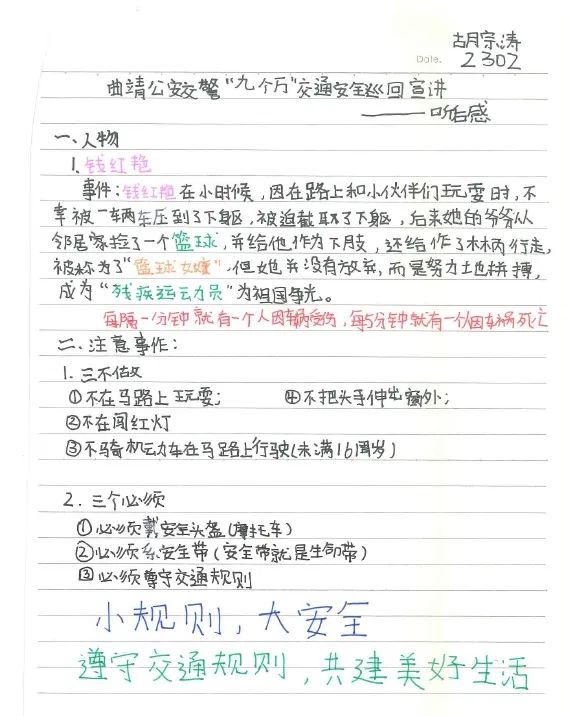 胡宗涛
Date. 2302
曲靖公安交警“九个万”交通安全巡回宣讲
——听后感
一、人物
1.钱红艳
事件:钱红艳在小时候,因在路上和小伙伴们玩耍时,不
幸被一辆车压到了下躯,被迫截取了下躯,后来她的爷爷从
邻居家捡了一个篮球,并给他作为下肢,还给作了木柄行走,
被称为了“篮球女孩”.但她并没有放弃,而是努力地拼搏,
成为“残疾运动员”为祖国争光。
每隔一分钟就有一个人因车祸受伤,每5分钟就有一个人因车祸死亡
二、注意事作:
1.三不做
①不在马路上玩耍; ④不把头手伸出窗外;
②不在闯红灯
③不骑机动车在马路上行驶(未满16周岁)
2.三个必须
①必须戴安全头盔(摩托车)
②必须系安全带(安全带就是生命带)
③必须尊守交通规则
小规则,大安全
遵守交通规则,共建美好生活